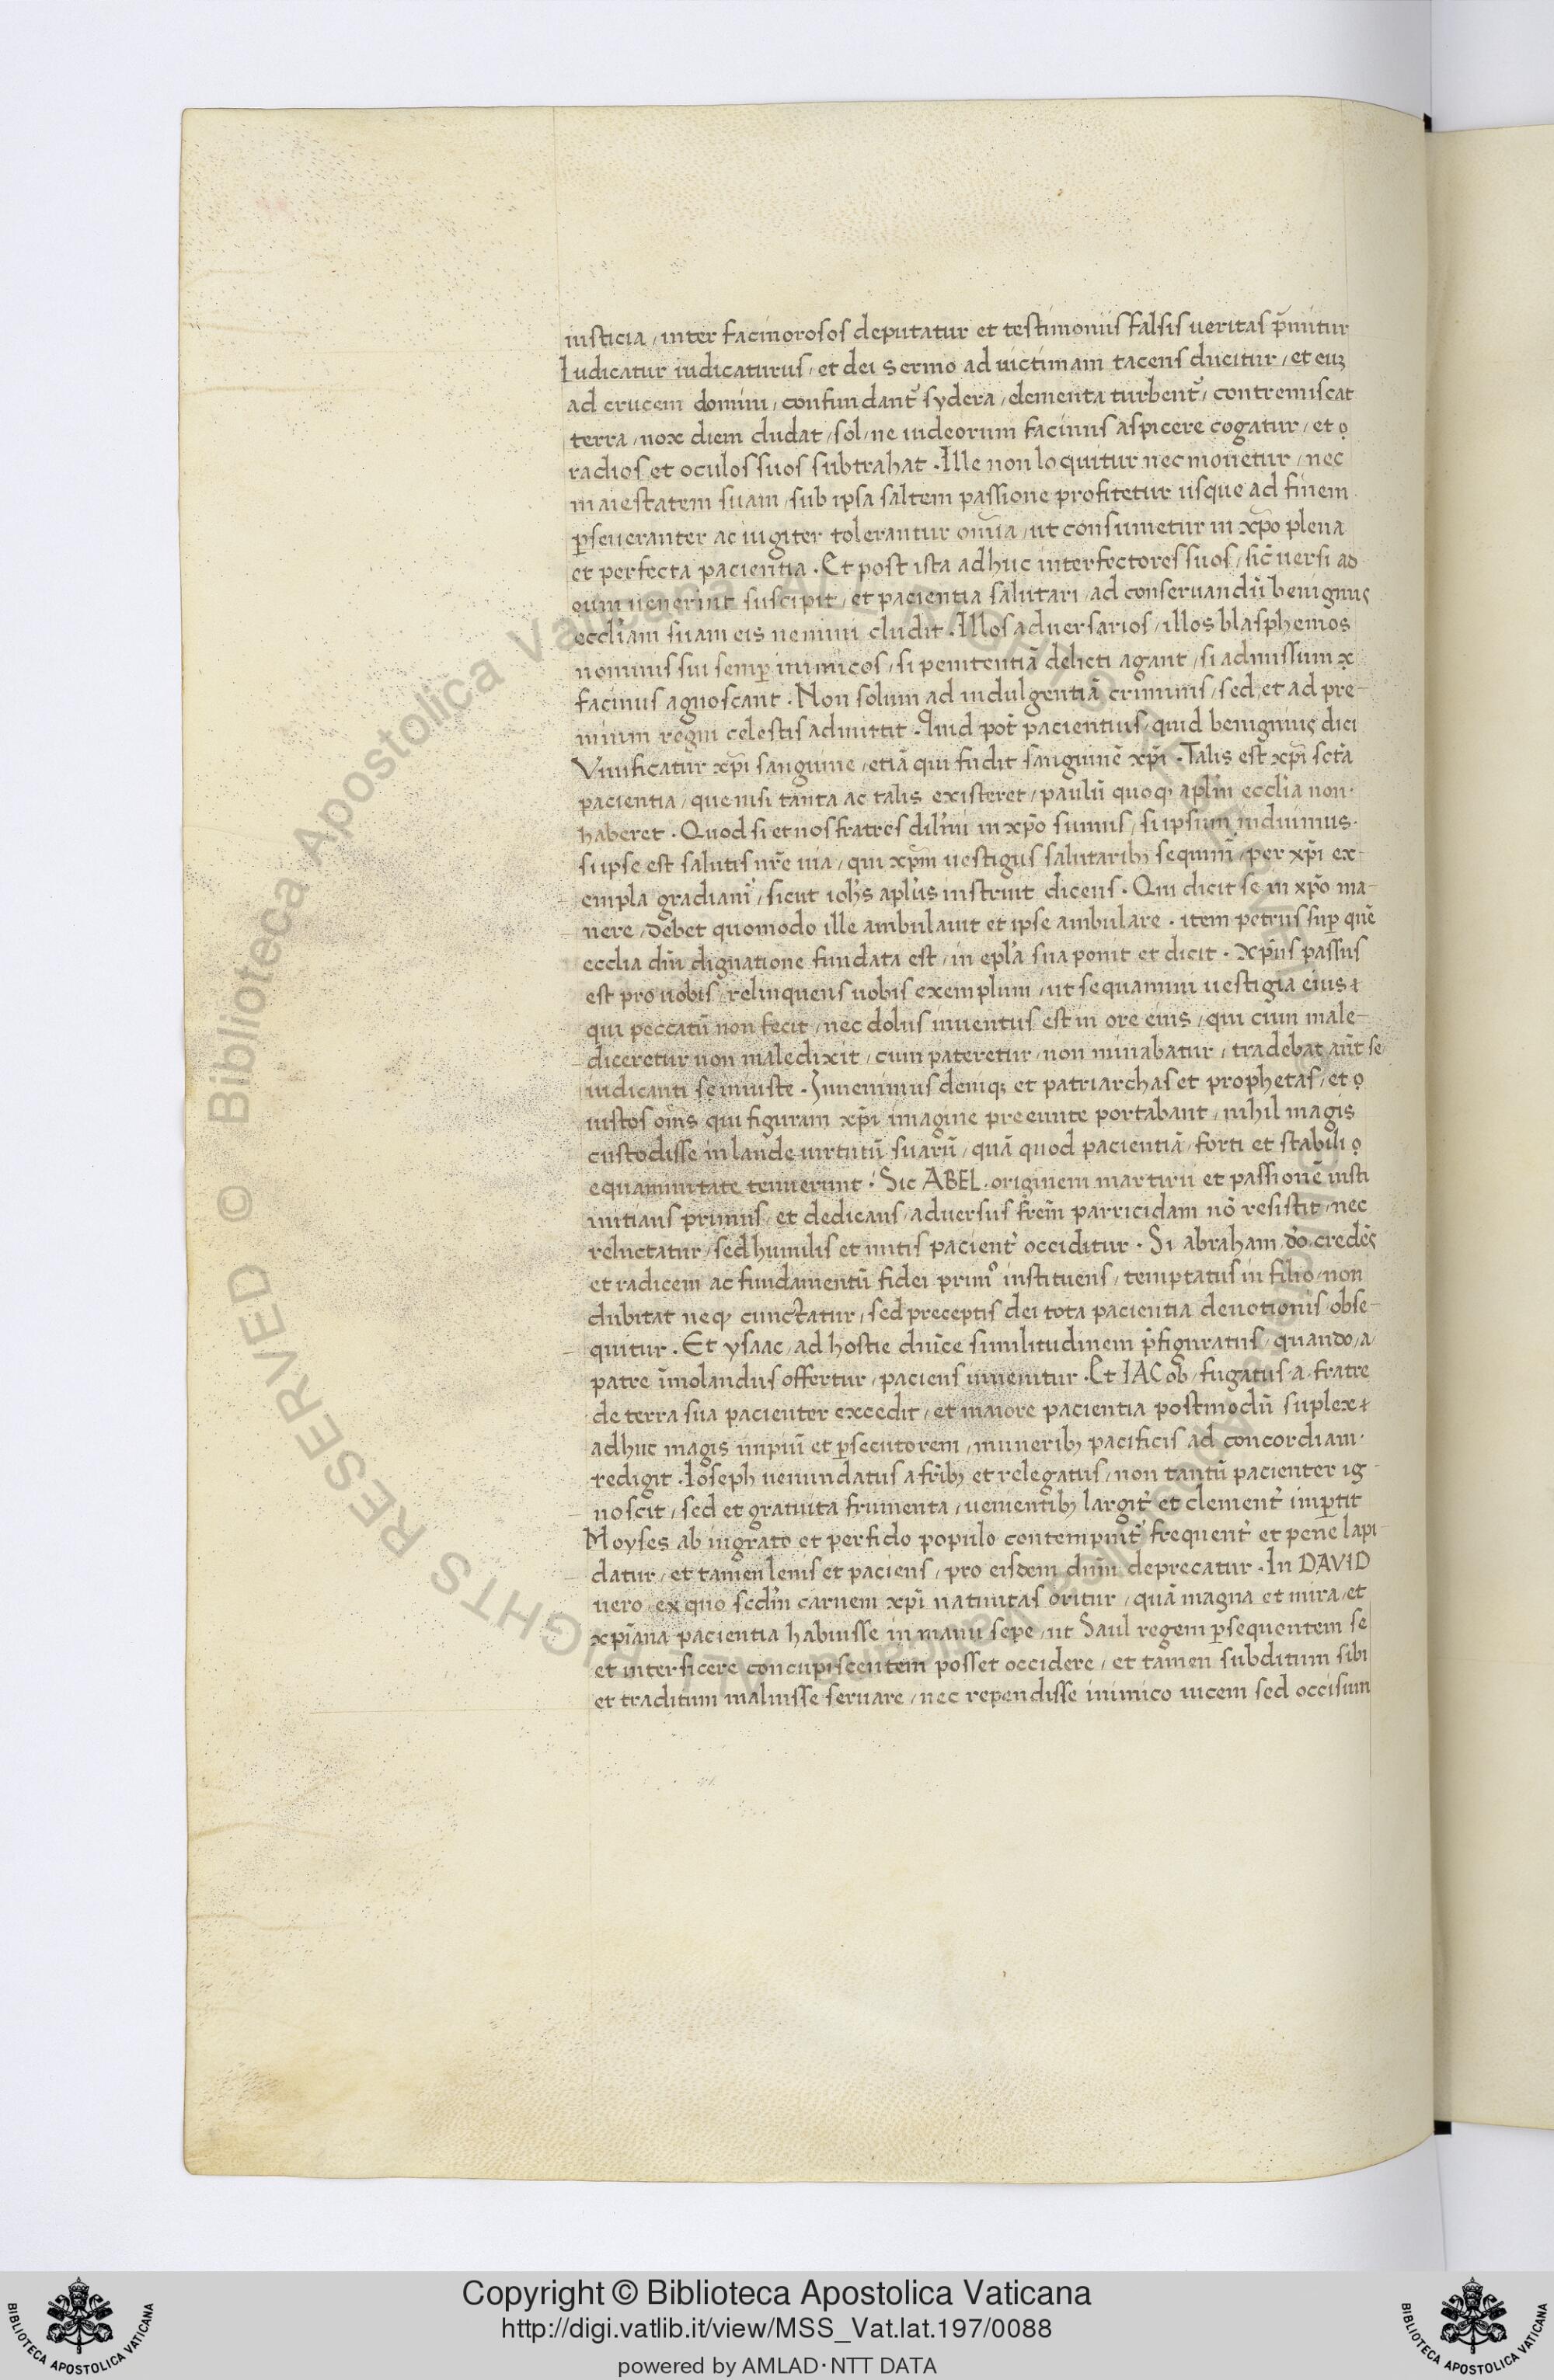 iusticia / inter facinorosos deputatur et testimoniis falsis ueritas p̄mitur
Iudicatur iudicaturus / et dei sermo ad uictimam tacens ducitur / et cuꝫ
ad crucem domini / confundant᷑ sydera / elementa turbent᷑ / contremiscat
terra / nox diem cludat / sol / ne iudeorum facinus aspicere cogatur / et
radios et oculos suos subtrahat · Ille non loquitur nec mouetur / nec
maiestatem suam / sub ipsa saltem passione profitetur usque ad finem
ꝑseueranter ac iugiter tolerantur om̄ia / ut consumetur in xp̄o plena
et perfecta paciencia · Et post ista adhuc interfectores suos / sic̄ uersi ad
eum uenerint suscipit / et paciencia salutari / ad conseruandū benignus
eccl̄iam suam eis nemini cludit · Illos aduersarios / illos blasphemos
nominis sui semꝑ inimicos / si penitentiā delicti agant / si admissum
facinus agnoscant · Non solum ad indulgentiā criminis / sed et ad pre-
mium regni celestis admittit · Quid pot̄ pacientius / quid benignius dici
Viuificatur xp̄i sanguine / etiā qui fudit sanguinē xp̄i · Talis est xp̄i sct̄a
paciencia / que nisi tanta ac talis existeret / paulū quoqꝫ apl̄m eccl̄ia non
haberet · Quod si et nos fratres dil̄mi in xp̄o sumus / si ipsum induimus ·
si ipse est salutis nr̄e uia / qui xp̄m uestigiis salutaribꝫ sequim̄ / per xp̄i ex-
empla gradiam᷑ / sicut ioh̄s apl̄us instruit dicens · Qui dicit se in xp̄o ma-
nere / debet quomodo ille ambulauit et ipse ambulare · item petrus suꝑ quē
ecclia dn̄i dignatione fundata est / in epl̄a sua ponit et dicit · Xp̄us passus
est pro uobis / relinquens uobis exemplum / ut sequamini uestigia eius
qui peccatū non fecit / nec dolus inuentus est in ore eius / qui cum male-
diceretur non maledixit / cum pateretur / non minabatur / tradebat aūt se
iudicanti se iniuste · Inuenimus deniqꝫ et patriarchas et prophetas / et
iustos om̄s qui figuram xp̄i imagine preeunte portabant / nihil magis
custodisse in laude uirtutū suarū / quā quod pacientiā / forti et stabili
equanimitate tenuerunt · Sic ABEL · originem martirii et passionē iusti
initians primus / et dedicans / aduersus fr̄em parricidam nō resistit / nec
reluctatur / sed humilis et mitis pacient᷑ occiditur · Si abraham dō credēs
et radicem ac fundamentū fidei primꝰ instituens / temptatus in filio / non
dubitat neqꝫ cunctatur / sed preceptis dei tota paciencia deuotionis obse-
quitur · Et ysaac / ad hostie dn̄ice similitudinem p̄figuratus / quando / a
patre īmolandus offertur / paciens inuenitur · Et IACob / fugatus a fratre
de terra sua pacienter excedit / et maiore paciencia postmodū suplex
adhuc magis impiū et ꝑsecutorem / muneribꝫ pacificis ad concordiam ·
redigit · Ioseph uenundatus a fr̄ibꝫ et relegatus / non tantū pacienter ig-
noscit / sed et gratuita frumenta / uenientibꝫ largit᷑ et clement᷑ imꝑtit
Moyses ab ingrato et perfido populo contempnit᷑ frequent᷑ et pene lapi
datur / et tamen lenis et paciens / pro eisdem dn̄m deprecatur · In DAVID
uero / ex quo sc̄dm carnem xp̄i natiuitas oritur / quā magna et mira / et
xp̄iana paciencia habuisse in manu sepe / ut Saul regem ꝑsequentem se
et interficere concupiscentem posset occidere / et tamen subditum sibi
et traditum maluisse seruare / nec rependisse inimico uicem sed occisum
© Biblioteca Apostolica Vaticana ALL RIGHTS RESERVED
Copyright © Biblioteca Apostolica Vaticana
http://digi.vatlib.it/view/MSS_Vat.lat.197/0088
powered by AMLAD·NTT DATA
BIBLIOTECA APOSTOLICA VATICANA
BIBLIOTECA APOSTOLICA VATICANA